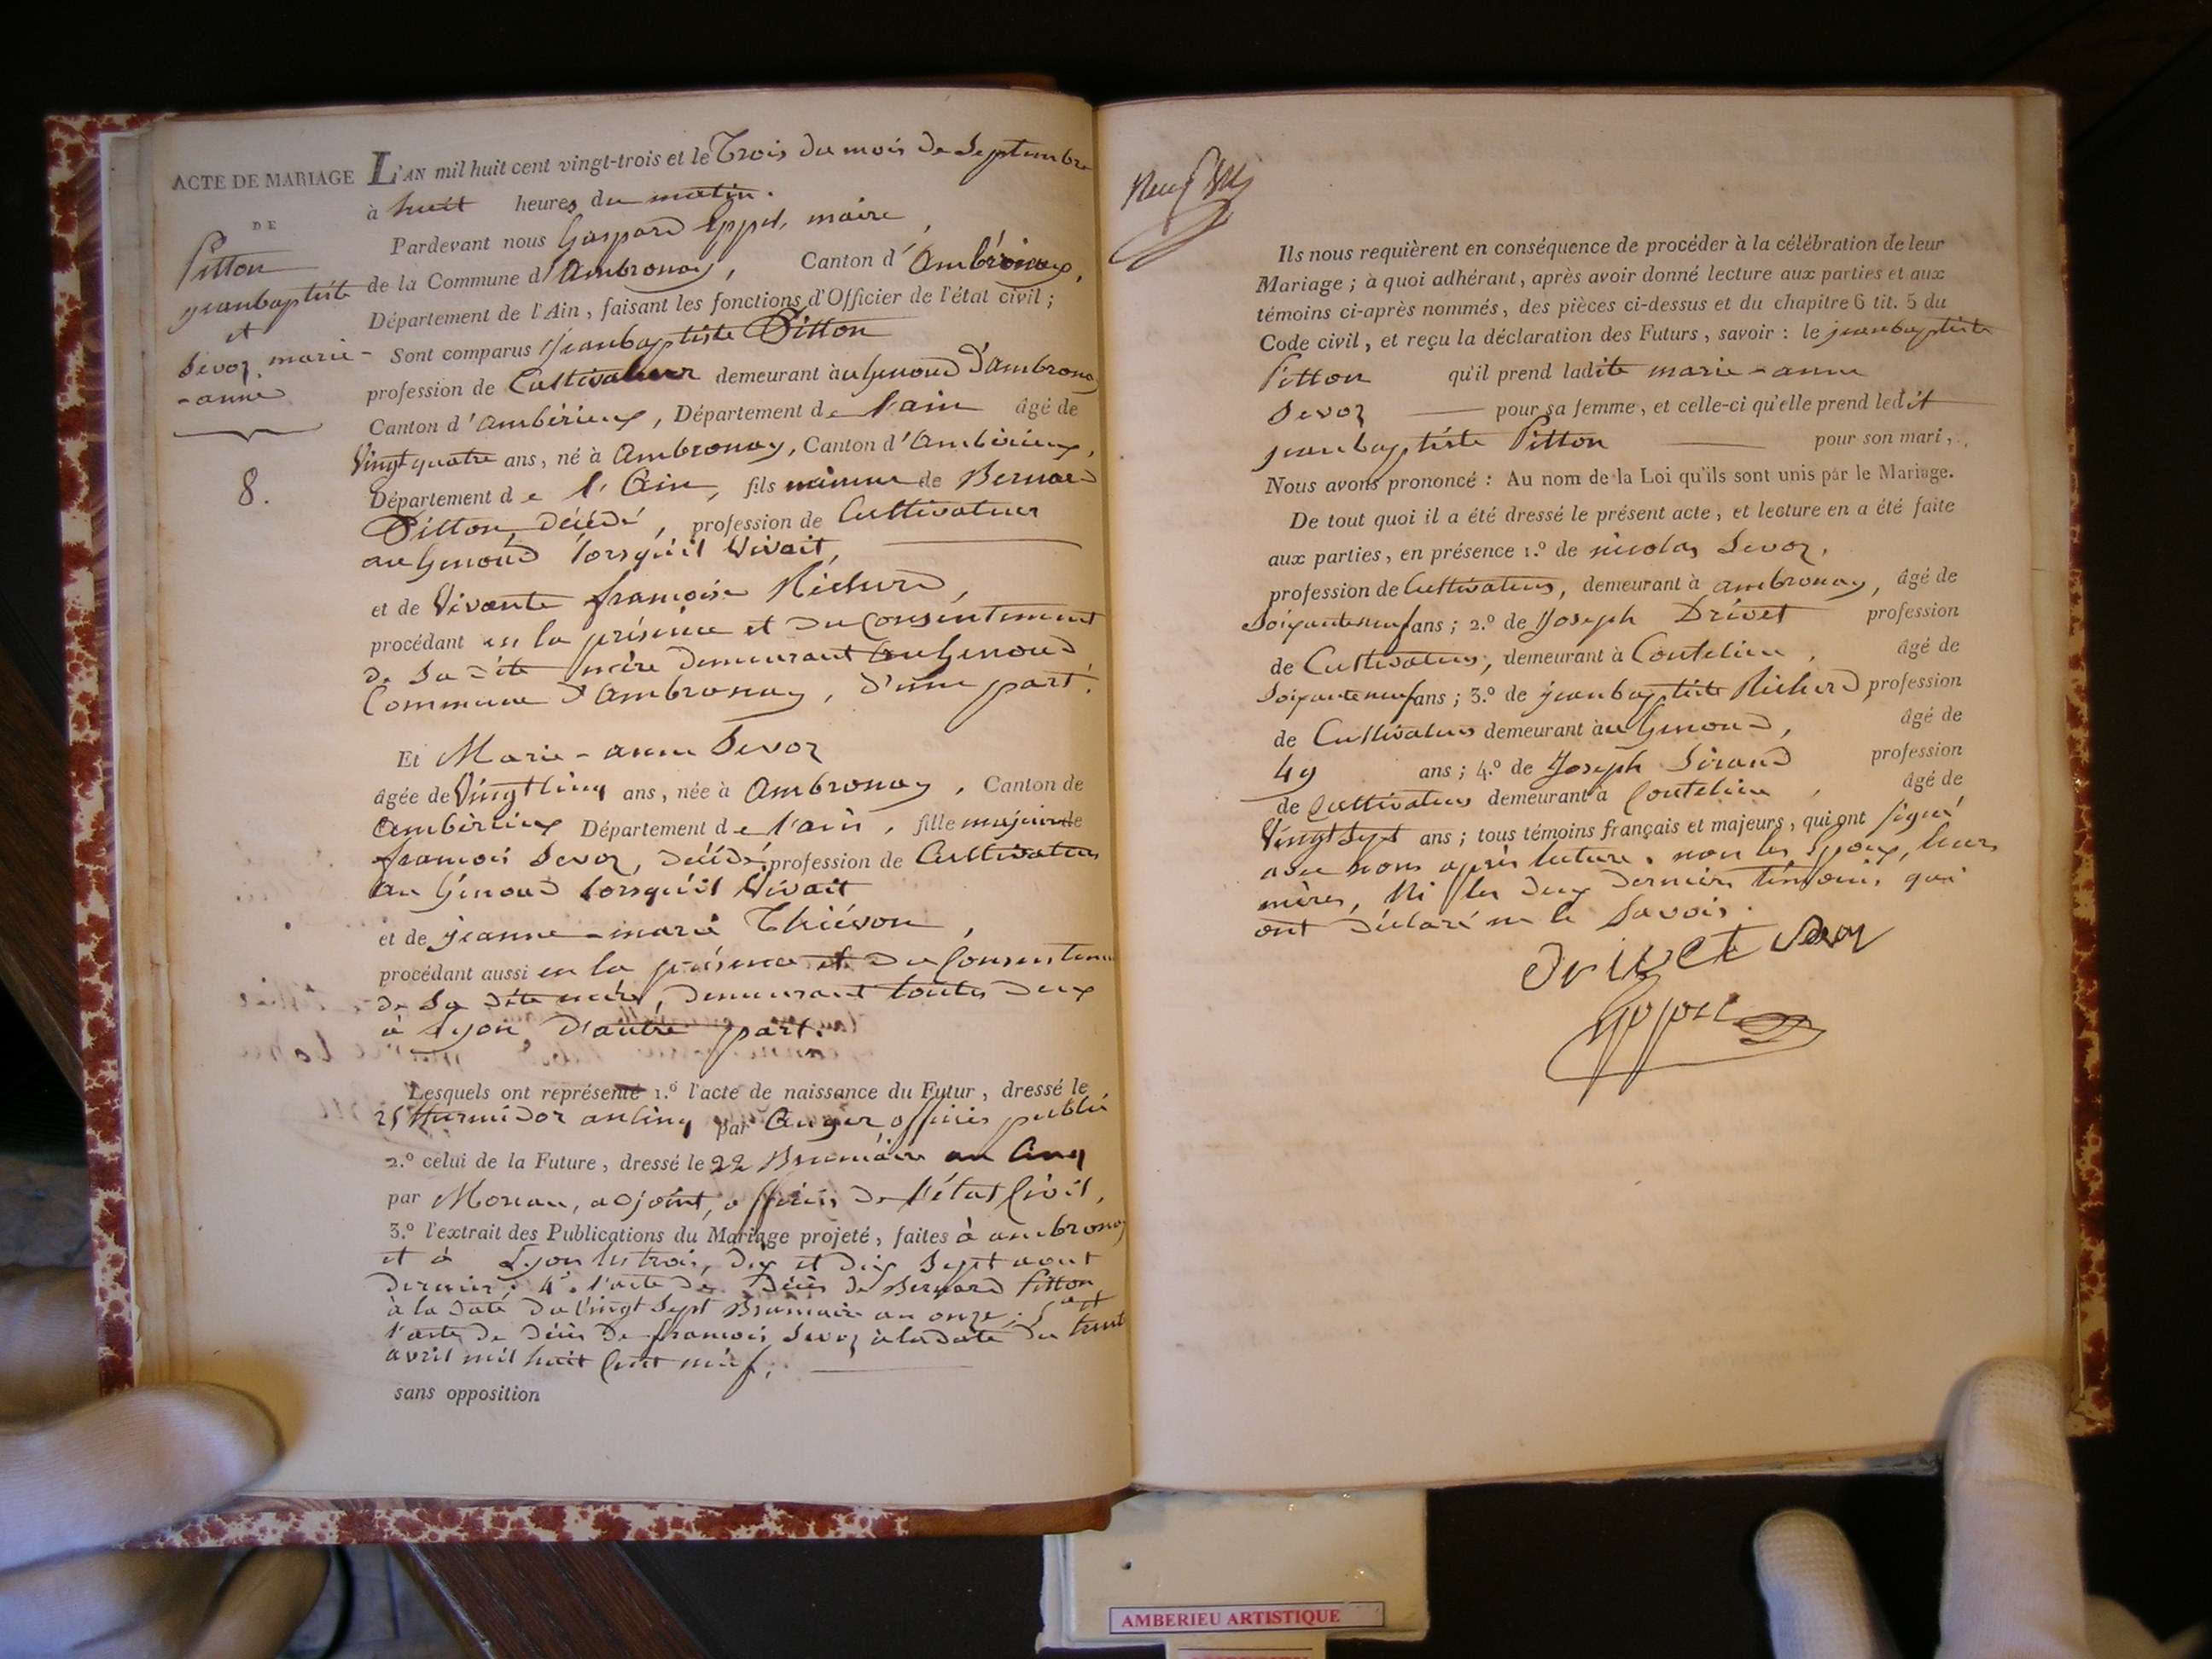 ACTE DE MARIAGE
DE
Pitton
jeanbaptiste
et
Sevoz marie-
-anne
8.
L'AN mil huit cent vingt-trois et le Trois du mois de Septembre
à huit heures du matin.
Pardevant nous Gaspard Eppel, maire,
de la Commune d'Ambronay, Canton d'Ambérieux,
Département de l'Ain, faisant les fonctions d'Officier de l'état civil;
Sont comparus jeanbaptiste Pitton
profession de Cultivateur demeurant au Genoud d'ambronay
Canton d'ambérieux, Département de l'ain âgé de
Vingt quatre ans, né à Ambronay, Canton d'Ambérieux,
Département de l'Ain, fils mineur de Bernard
Pitton, décédé, profession de Cultivateur
au Genoud lorsqu'il Vivait,
et de Vivante françoise Richerd,
procédant en la présence et du Consentement
de Sa dite mère demeurant au Genoud
Commune d'Ambronay, d'une part.
Et Marie-anne Sevoz
âgée de Vingt Cinq ans, née à Ambronay, Canton de
Ambérieux Département de l'ain, fille majeure de
françois Sevoz, décédé, profession de Cultivateur
au Génoud lorsqu'il Vivait
et de jeanne-marie Thiévon,
procédant aussi en la présence et du Consentem
de Sa dite mère, demeurant toutes deux
à Lyon, d'autre part.
Lesquels ont représenté 1.º l'acte de naissance du Futur, dressé le
25 thermidor an Cinq par Auger officier public
2.º celui de la Future, dressé le 22 Brumaire an Cinq
par Moreau, adjoint, officier de l'état Civil,
3.º l'extrait des Publications du Mariage projeté, faites à ambronay
et à Lyon les trois, dix et dix Sept aout
dernier; 4º. l'acte de décès de Bernard Pitton
à la date du Vingt Sept Brumaire an onze; 5º et
l'acte de décès de françois Sevoz à la date du trente
avril mil huit Cent neuf,
sans opposition
Ils nous requièrent en conséquence de procéder à la célébration de leur
Mariage; à quoi adhérant, après avoir donné lecture aux parties et aux
témoins ci-après nommés, des pièces ci-dessus et du chapitre 6 tit. 5 du
Code civil, et reçu la déclaration des Futurs, savoir: le jeanbaptiste
Pitton qu'il prend ladite marie-anne
Sevoz pour sa femme, et celle-ci qu'elle prend ledit
jeanbaptiste Pitton pour son mari,
Nous avons prononcé: Au nom de la Loi qu'ils sont unis par le Mariage.
De tout quoi il a été dressé le présent acte, et lecture en a été faite
aux parties, en présence 1.º de nicolas Sevoz,
profession de Cultivateur, demeurant à ambronay, âgé de
Soixante neuf ans; 2.º de Joseph Drivet profession
de Cultivateur, demeurant à Coutelieu, âgé de
Soixante neuf ans; 3.º de jeanbaptiste Richerd, profession
de Cultivateur demeurant au Genoud, âgé de
49 ans; 4.º de Joseph Sirand profession
de Cultivateur demeurant à Coutelieu, âgé de
Vingt Sept ans; tous témoins français et majeurs, qui ont Signé
avec nous après lecture, non les Epoux, leurs
mères, Ni les deux derniers témoins, qui
ont déclaré ne le Savoir.
Drivet Sevoz
Eppel
AMBERIEU ARTISTIQUE